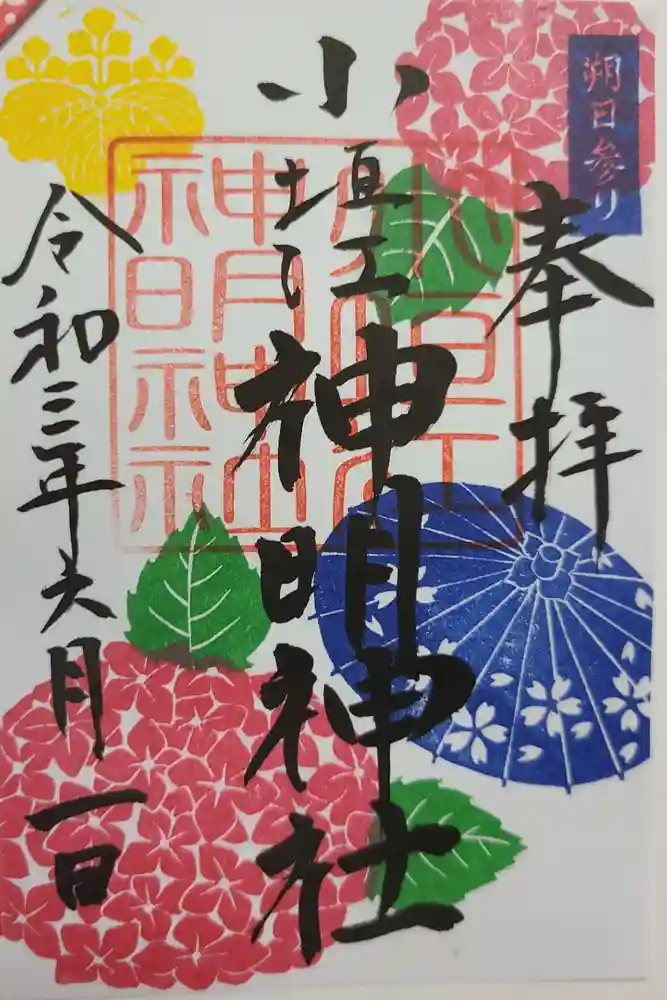 朔日参り
奉拝
小垣江神明神社
小垣江
神明神社
令和三年六月一日